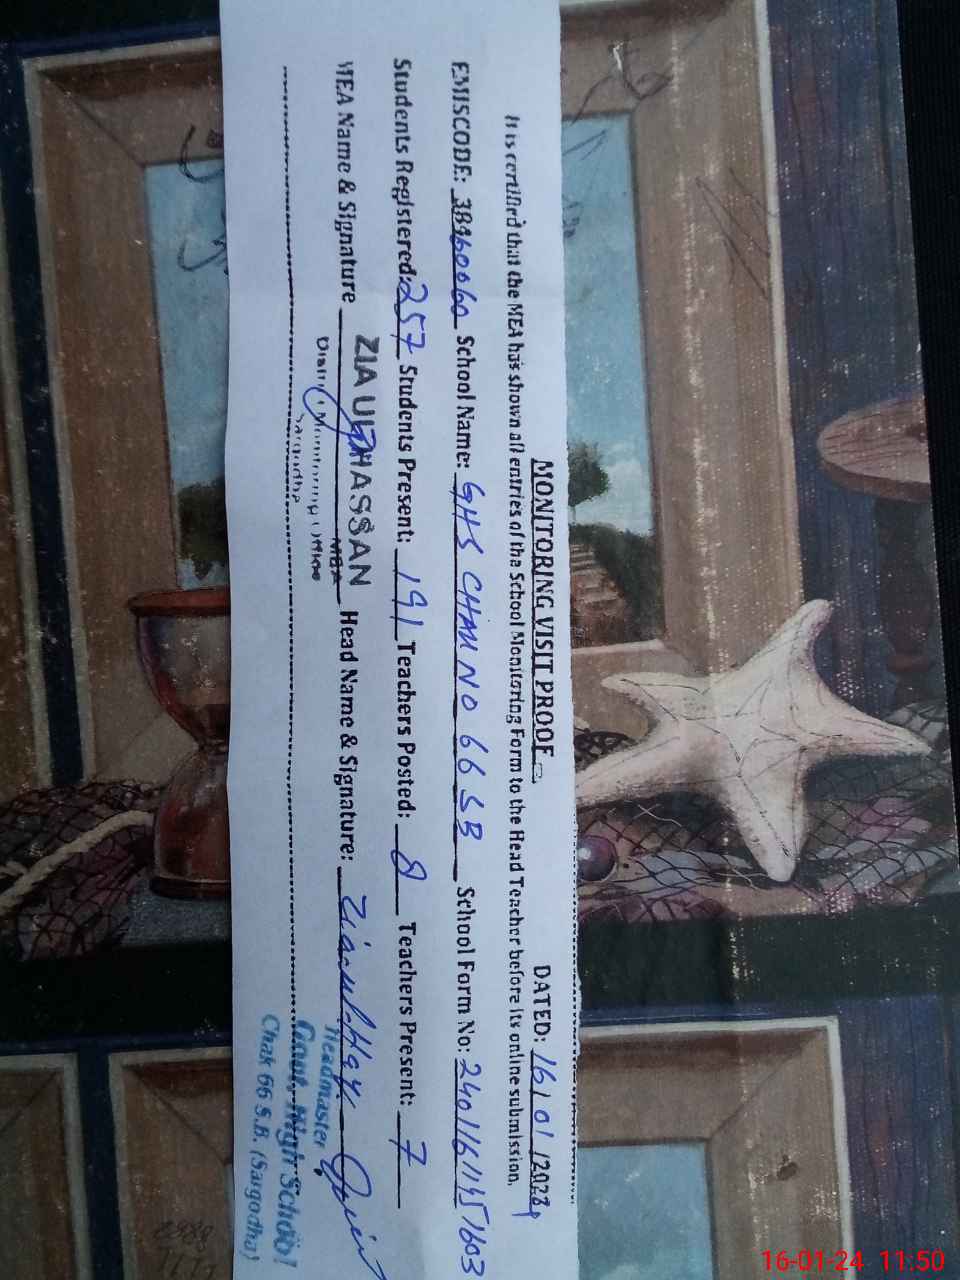 MONITORING VISIT PROOF
DATED: 16/01/2024
It is certified that the MEA has shown all entries of the School Monitoring Form to the Head Teacher before its online submission.
EMISCODE: 38460060 School Name: GHS CHAK NO 66 SB School Form No: 24011611451603
Students Registered: 257 Students Present: 191 Teachers Posted: 8 Teachers Present: 7
MEA Name & Signature ZIA UL HASSAN Head Name & Signature: Zia-ul-Haq
MEA
District Monitoring Office
Sargodha
Headmaster
Govt. High School
Chak 66 S.B. (Sargodha)
16-01-24 11:50